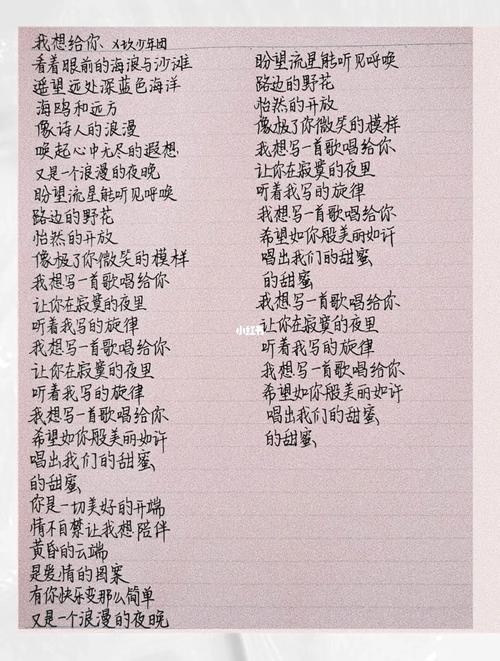 我想给你、乂玖少年团
看着眼前的海浪与沙滩
遥望远处深蓝色海洋
海鸥和远方
像诗人的浪漫
唤起心中无尽的遐想
又是一个浪漫的夜晚
盼望流星能听见呼唤
路边的野花
怡然的开放
像极了你微笑的模样
我想写一首歌唱给你
让你在寂寞的夜里
听着我写的旋律
我想写一首歌唱给你
让你在寂寞的夜里
听着我写的旋律
我想写一首歌唱给你
希望如你般美丽如许
唱出我们的甜蜜
的甜蜜
你是一切美好的开端
情不自禁让我想陪伴
黄昏的云端
是爱情的图案
有你快乐变那么简单
又是一个浪漫的夜晚
盼望流星能听见呼唤
路边的野花
怡然的开放
像极了你微笑的模样
我想写一首歌唱给你
让你在寂寞的夜里
听着我写的旋律
我想写一首歌唱给你
希望如你般美丽如许
唱出我们的甜蜜
的甜蜜
我想写一首歌唱给你
让你在寂寞的夜里
听着我写的旋律
我想写一首歌唱给你
希望如你般美丽如许
唱出我们的甜蜜
的甜蜜
小红书